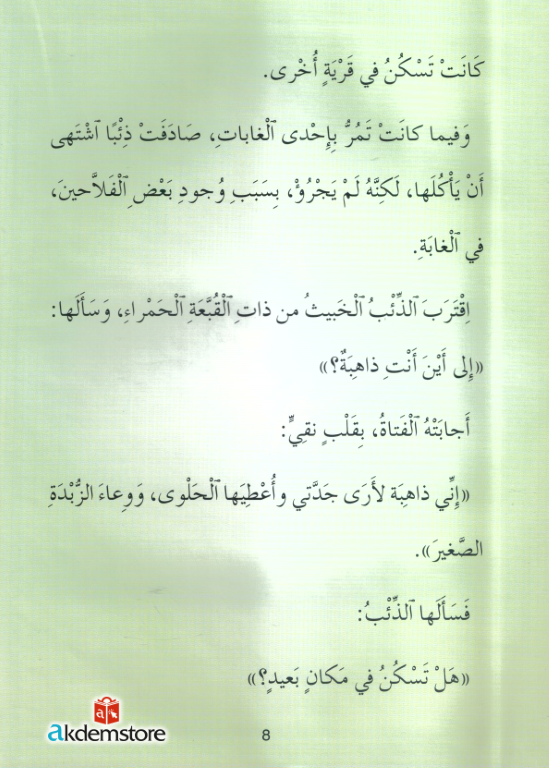 كَانَتْ تَسْكُنُ في قَرْيَةٍ أُخْرى.
وَفيما كانَتْ تَمُرُّ بِإِحْدى ٱلْغاباتِ، صَادَفَتْ ذِئْبًا ٱشْتَهى
أَنْ يَأْكُلَها، لَكِنَّهُ لَمْ يَجْرُؤْ، بِسَبَبِ وُجودِ بَعْضِ ٱلْفَلاَّحينَ،
في ٱلْغابَةِ.
اِقْتَرَبَ ٱلذِّئْبُ ٱلْخَبيثُ من ذاتِ ٱلْقُبَّعَةِ ٱلْحَمْراءِ، وَسَأَلَها:
«إِلى أَيْنَ أَنْتِ ذاهِبَةٌ؟»
أَجابَتْهُ ٱلْفَتاةُ، بِقَلْبٍ نقِيٍّ:
«إِنِّي ذاهِبَة لأَرَى جَدَّتي وأُعْطِيَها ٱلْحَلْوى، وَوِعاءَ الزُّبْدَةِ
الصَّغيرَ».
فَسَأَلَها ٱلذِّئْبُ:
«هَلْ تَسْكُنُ في مَكانٍ بَعيدٍ؟»
akdemstore
8